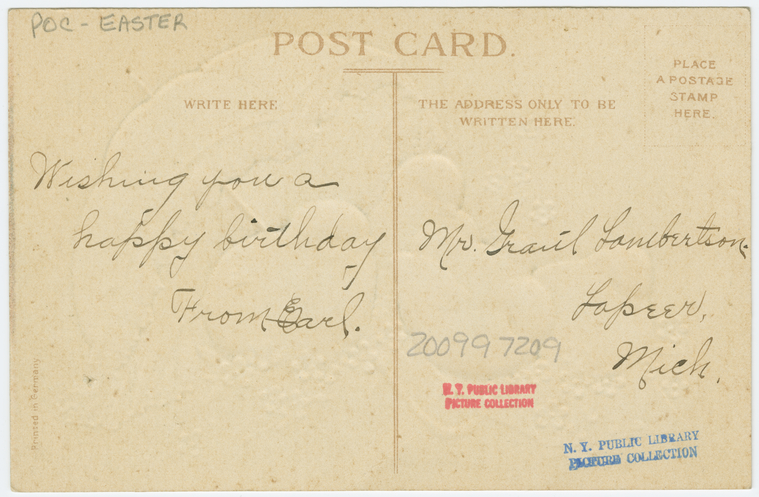 POC - EASTER
POST CARD.
WRITE HERE
THE ADDRESS ONLY TO BE
WRITTEN HERE.
PLACE
A POSTAGE
STAMP
HERE.
Wishing you a
happy birthday
From Earl.
Mr. Lambertson
Lapeer,
Mich.
200997209
N. Y. PUBLIC LIBRARY
PICTURE COLLECTION
N. Y. PUBLIC LIBRARY
PICTURE COLLECTION
Printed in Germany